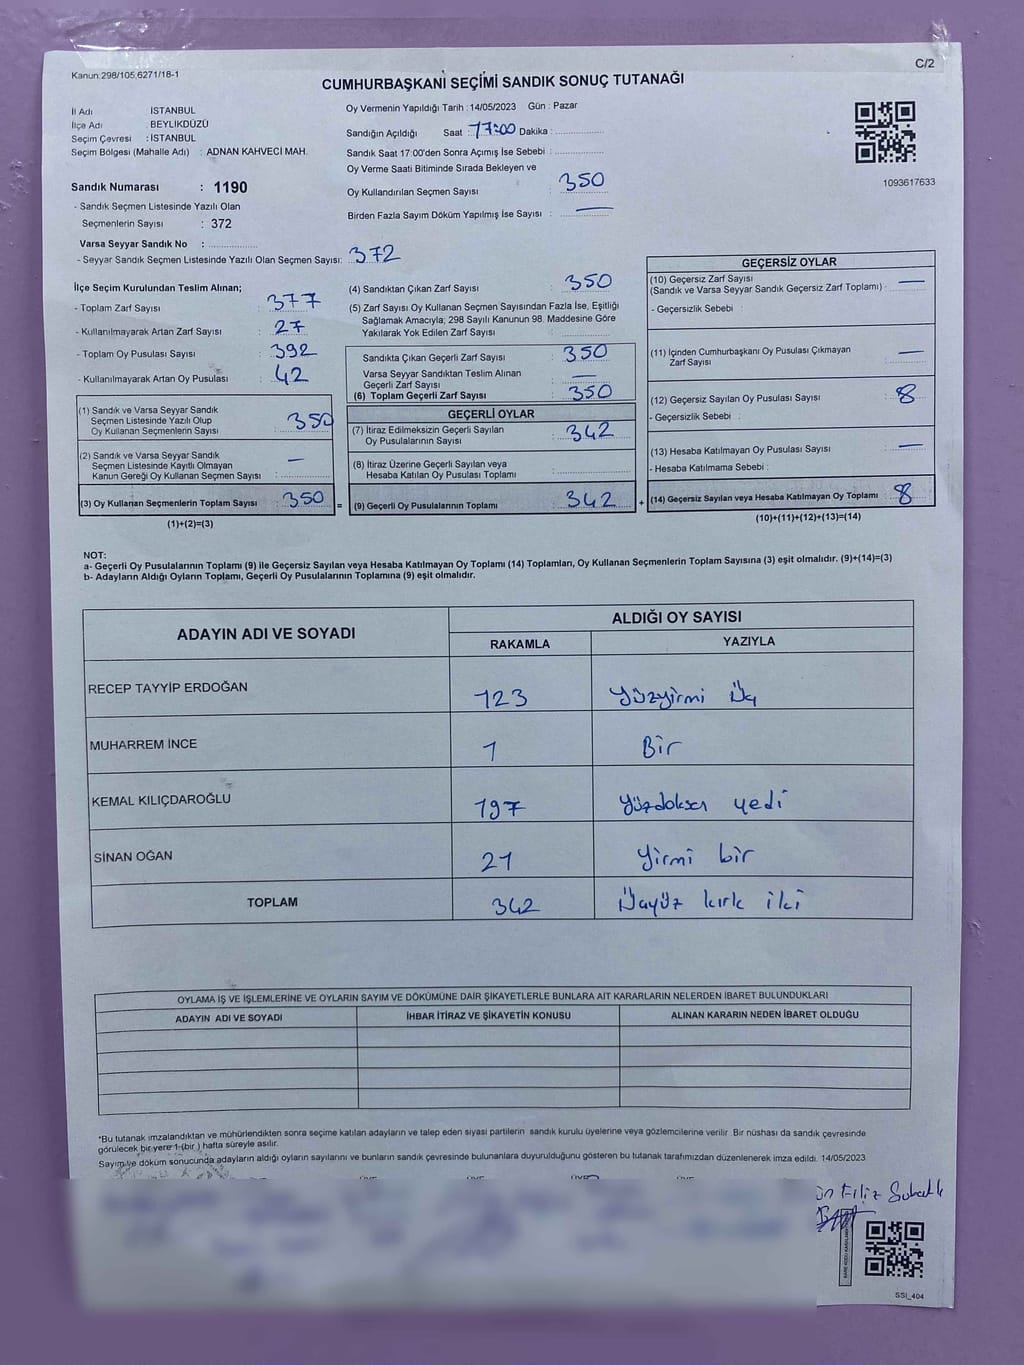 Kanun 298/105,6271/18-1
C/2
CUMHURBAŞKANI SEÇİMİ SANDIK SONUÇ TUTANAĞI
İl Adı İSTANBUL
İlçe Adı BEYLİKDÜZÜ
Seçim Çevresi : İSTANBUL
Seçim Bölgesi (Mahalle Adı) : ADNAN KAHVECİ MAH.
Sandık Numarası : 1190
- Sandık Seçmen Listesinde Yazılı Olan
Seçmenlerin Sayısı : 372
Varsa Seyyar Sandık No :
- Seyyar Sandık Seçmen Listesinde Yazılı Olan Seçmen Sayısı: 372
Oy Vermenin Yapıldığı Tarih : 14/05/2023 Gün : Pazar
Sandığın Açıldığı Saat : 17:00 Dakika :
Sandık Saat 17:00'den Sonra Açımış İse Sebebi :
Oy Verme Saati Bitiminde Sırada Bekleyen ve
Oy Kullandırılan Seçmen Sayısı : 350
Birden Fazla Sayım Döküm Yapılmış İse Sayısı : —
1093617633
İlçe Seçim Kurulundan Teslim Alınan;
- Toplam Zarf Sayısı : 377
- Kullanılmayarak Artan Zarf Sayısı : 27
- Toplam Oy Pusulası Sayısı : 392
- Kullanılmayarak Artan Oy Pusulası : 42
(1) Sandık ve Varsa Seyyar Sandık
Seçmen Listesinde Yazılı Olup
Oy Kullanan Seçmenlerin Sayısı : 350
(2) Sandık ve Varsa Seyyar Sandık
Seçmen Listesinde Kayıtlı Olmayan
Kanun Gereği Oy Kullanan Seçmen Sayısı : —
(3) Oy Kullanan Seçmenlerin Toplam Sayısı : 350
(1)+(2)=(3)
(4) Sandıktan Çıkan Zarf Sayısı : 350
(5) Zarf Sayısı Oy Kullanan Seçmen Sayısından Fazla İse, Eşitliği
Sağlamak Amacıyla; 298 Sayılı Kanunun 98. Maddesine Göre
Yakılarak Yok Edilen Zarf Sayısı :
Sandıkta Çıkan Geçerli Zarf Sayısı : 350
Varsa Seyyar Sandıktan Teslim Alınan
Geçerli Zarf Sayısı : —
(6) Toplam Geçerli Zarf Sayısı : 350
GEÇERLİ OYLAR
(7) İtiraz Edilmeksizin Geçerli Sayılan
Oy Pusulalarının Sayısı : 342
(8) İtiraz Üzerine Geçerli Sayılan veya
Hesaba Katılan Oy Pusulası Toplamı :
= (9) Geçerli Oy Pusulalarının Toplamı : 342 +
GEÇERSİZ OYLAR
(10) Geçersiz Zarf Sayısı
(Sandık ve Varsa Seyyar Sandık Geçersiz Zarf Toplamı) : —
- Geçersizlik Sebebi :
(11) İçinden Cumhurbaşkanı Oy Pusulası Çıkmayan
Zarf Sayısı : —
(12) Geçersiz Sayılan Oy Pusulası Sayısı : 8
- Geçersizlik Sebebi :
(13) Hesaba Katılmayan Oy Pusulası Sayısı : —
- Hesaba Katılmama Sebebi :
(14) Geçersiz Sayılan veya Hesaba Katılmayan Oy Toplamı : 8
(10)+(11)+(12)+(13)=(14)
NOT:
a- Geçerli Oy Pusulalarının Toplamı (9) ile Geçersiz Sayılan veya Hesaba Katılmayan Oy Toplamı (14) Toplamları, Oy Kullanan Seçmenlerin Toplam Sayısına (3) eşit olmalıdır. (9)+(14)=(3)
b- Adayların Aldığı Oyların Toplamı, Geçerli Oy Pusulalarının Toplamına (9) eşit olmalıdır.
ADAYIN ADI VE SOYADI ALDIĞI OY SAYISI
RAKAMLA YAZIYLA
RECEP TAYYİP ERDOĞAN 123 Yüzyirmi Üç
MUHARREM İNCE 1 Bir
KEMAL KILIÇDAROĞLU 197 Yüzdoksan yedi
SİNAN OĞAN 21 Yirmi bir
TOPLAM 342 Üçyüz kırk iki
OYLAMA İŞ VE İŞLEMLERİNE VE OYLARIN SAYIM VE DÖKÜMÜNE DAİR ŞİKAYETLERLE BUNLARA AİT KARARLARIN NELERDEN İBARET BULUNDUKLARI
ADAYIN ADI VE SOYADI İHBAR İTİRAZ VE ŞİKAYETİN KONUSU ALINAN KARARIN NEDEN İBARET OLDUĞU
"Bu tutanak imzalandıktan ve mühürlendikten sonra seçime katılan adayların ve talep eden siyasi partilerin sandık kurulu üyelerine veya gözlemcilerine verilir. Bir nüshası da sandık çevresinde
görülecek bir yere 1 (bir ) hafta süreyle asılır.
Sayım ve döküm sonucunda adayların aldığı oyların sayılarını ve bunların sandık çevresinde bulunanlara duyurulduğunu gösteren bu tutanak tarafımızdan düzenlenerek imza edildi. 14/05/2023
Filiz
SSI_404